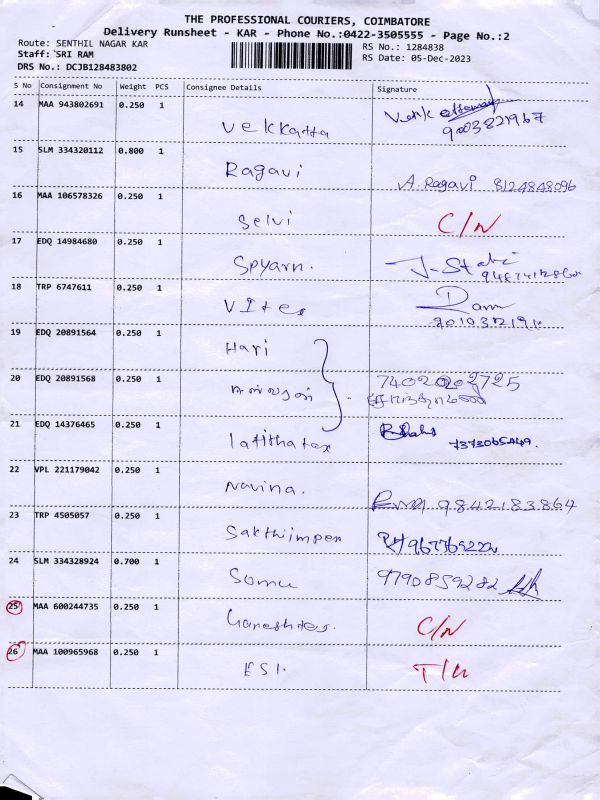 THE PROFESSIONAL COURIERS, COIMBATORE
Delivery Runsheet - KAR - Phone No.:0422-3505555 - Page No.:2
Route: SENTHIL NAGAR KAR
RS No.: 1284838
Staff: SRI RAM
RS Date: 05-Dec-2023
DRS No.: DCJB128483802
S No Consignment No Weight PCS Consignee Details Signature
14 MAA 943802691 0.250 1 Vekkatta Venk
9003821967
15 SLM 334320112 0.800 1 Ragavi A. Ragavi 8124848096
16 MAA 106578326 0.250 1 Selvi C/N
17 EDQ 14984680 0.250 1 Spyarn.
18 TRP 6747611 0.250 1 Vites Ram
19 EDQ 20891564 0.250 1 Hari
20 EDQ 20891568 0.250 1
21 EDQ 14376465 0.250 1 lalithatex 7373065449.
22 VPL 221179042 0.250 1 Navina. 9842183864
23 TRP 4505057 0.250 1 Sakthimpex
24 SLM 334328924 0.700 1 Somu 9790859282
25 MAA 600244735 0.250 1 Ganeshtex. C/N
26 MAA 100965968 0.250 1 ESI.